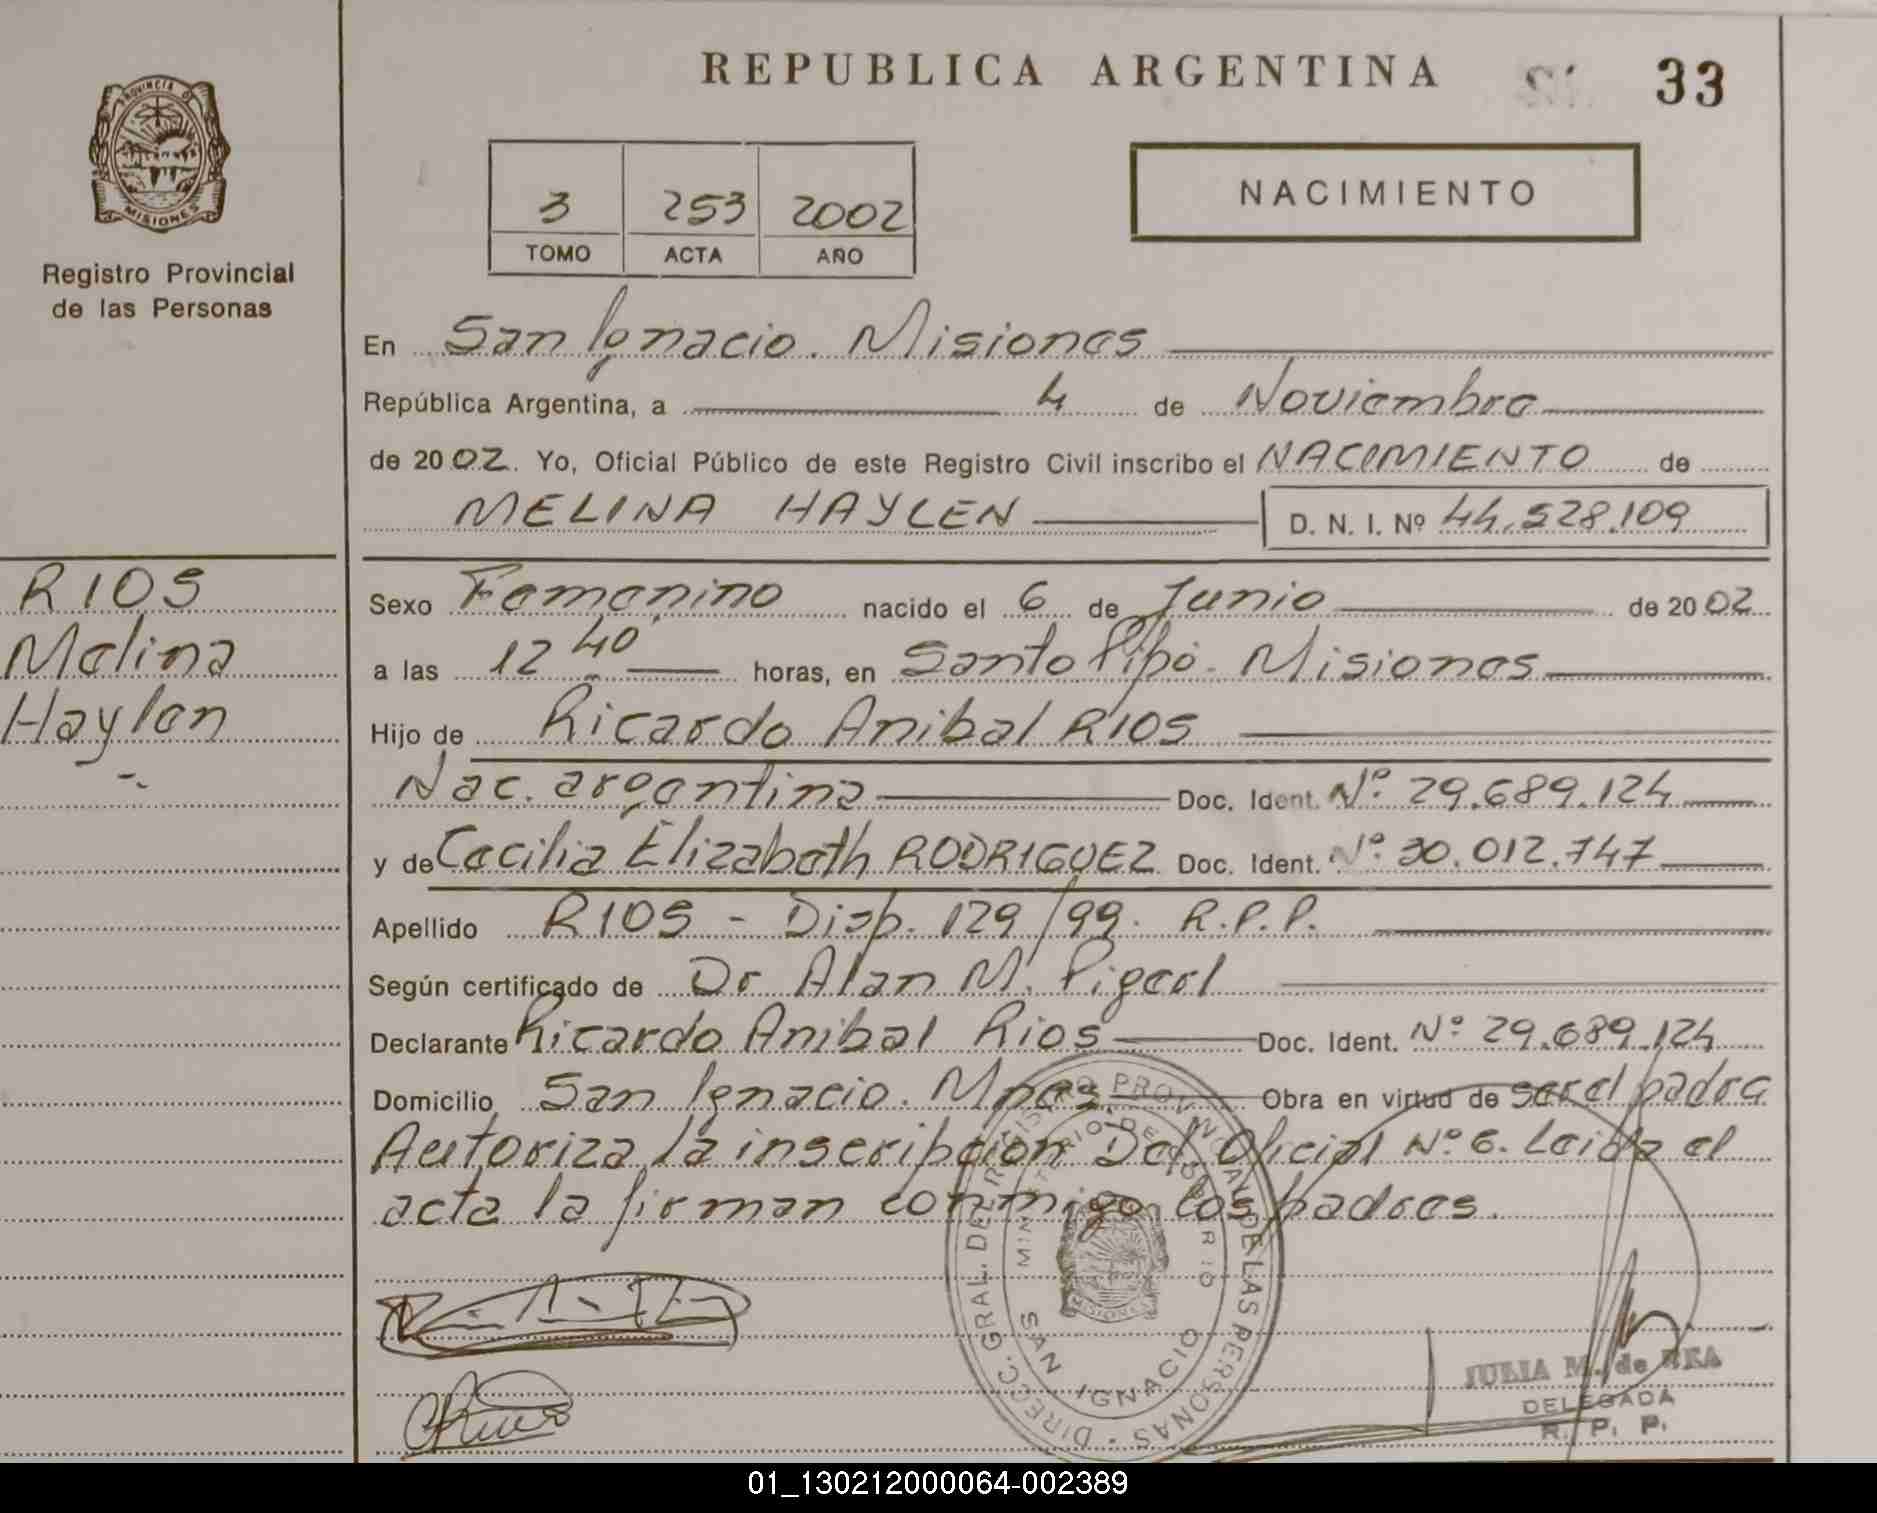 REPUBLICA ARGENTINA
33
NACIMIENTO
3 253 2002
TOMO ACTA AÑO
PROVINCIA DE
MISIONES
Registro Provincial
de las Personas
En San Ignacio. Misiones
República Argentina, a 4 de Noviembre
de 2002. Yo, Oficial Público de este Registro Civil inscribo el NACIMIENTO de
MELINA HAYLEN D. N. I. Nº 44.528.109
RIOS
Melina
Haylen
Sexo Femenino nacido el 6 de Junio de 2002
a las 12 40 horas, en Santo Pipó - Misiones
Hijo de Ricardo Anibal RIOS
Nac. argentina Doc. Ident. Nº 29.689.124
y de Cecilia Elizabeth RODRIGUEZ Doc. Ident. Nº 30.012.747
Apellido RIOS - Disp. 129/99. R.P.P.
Según certificado de Dr Alan M. Pigerl
Declarante Ricardo Anibal Rios Doc. Ident. Nº 29.689.124
Domicilio San Ignacio. Mnes. Obra en virtud de ser el padre
Autoriza la inscripcion Del Oficial Nº 6. Leida el
acta la firman conmigo los padres.
DIRECC. GRAL. DEL REGISTRO PROVINCIAL DE LAS PERSONAS
MINISTERIO DE GOBIERNO
MISIONES
SAN IGNACIO
JULIA M. de
DELEGADA
R. P. P.
01_130212000064-002389